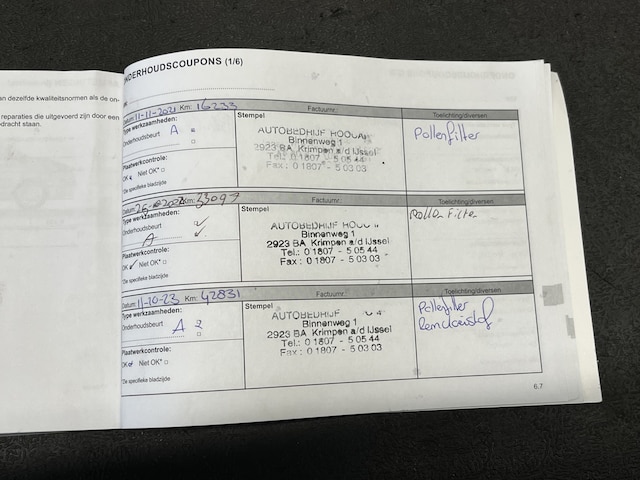 an dezelfde kwaliteitsnormen als de on-
reparaties die uitgevoerd zijn door een
edracht staan.
NDERHOUDSCOUPONS (1/6)
Datum 11-11-2021 Km: 16233 Factuurnr.: Toelichting/diversen
Type werkzaamheden: Stempel
Onderhoudsbeurt A
AUTOBEDRIJF
Binnenweg 1
2923 BA Krimpen a/d IJssel
Tel.: 0 1807 - 5 05 44
Fax : 0 1807 - 5 03 03
Pollenfilter
Plaatwerkcontrole:
OK Niet OK*
*Zie specifieke bladzijde
Datum Km: Factuurnr.: Toelichting/diversen
Type werkzaamheden: Stempel
Onderhoudsbeurt
A
AUTOBEDRIJF
Binnenweg 1
2923 BA Krimpen a/d IJssel
Tel.: 0 1807 - 5 05 44
Fax : 0 1807 - 5 03 03
Pollen Filter
Plaatwerkcontrole:
OK Niet OK*
*Zie specifieke bladzijde
Datum 11-10-23 Km: 42831 Factuurnr.: Toelichting/diversen
Type werkzaamheden: Stempel
Onderhoudsbeurt A
AUTOBEDRIJF
Binnenweg 1
2923 BA Krimpen a/d IJssel
Tel.: 0 1807 - 5 05 44
Fax : 0 1807 - 5 03 03
Pollenfilter
Remvloeistof
Plaatwerkcontrole:
OK Niet OK*
*Zie specifieke bladzijde
6.7